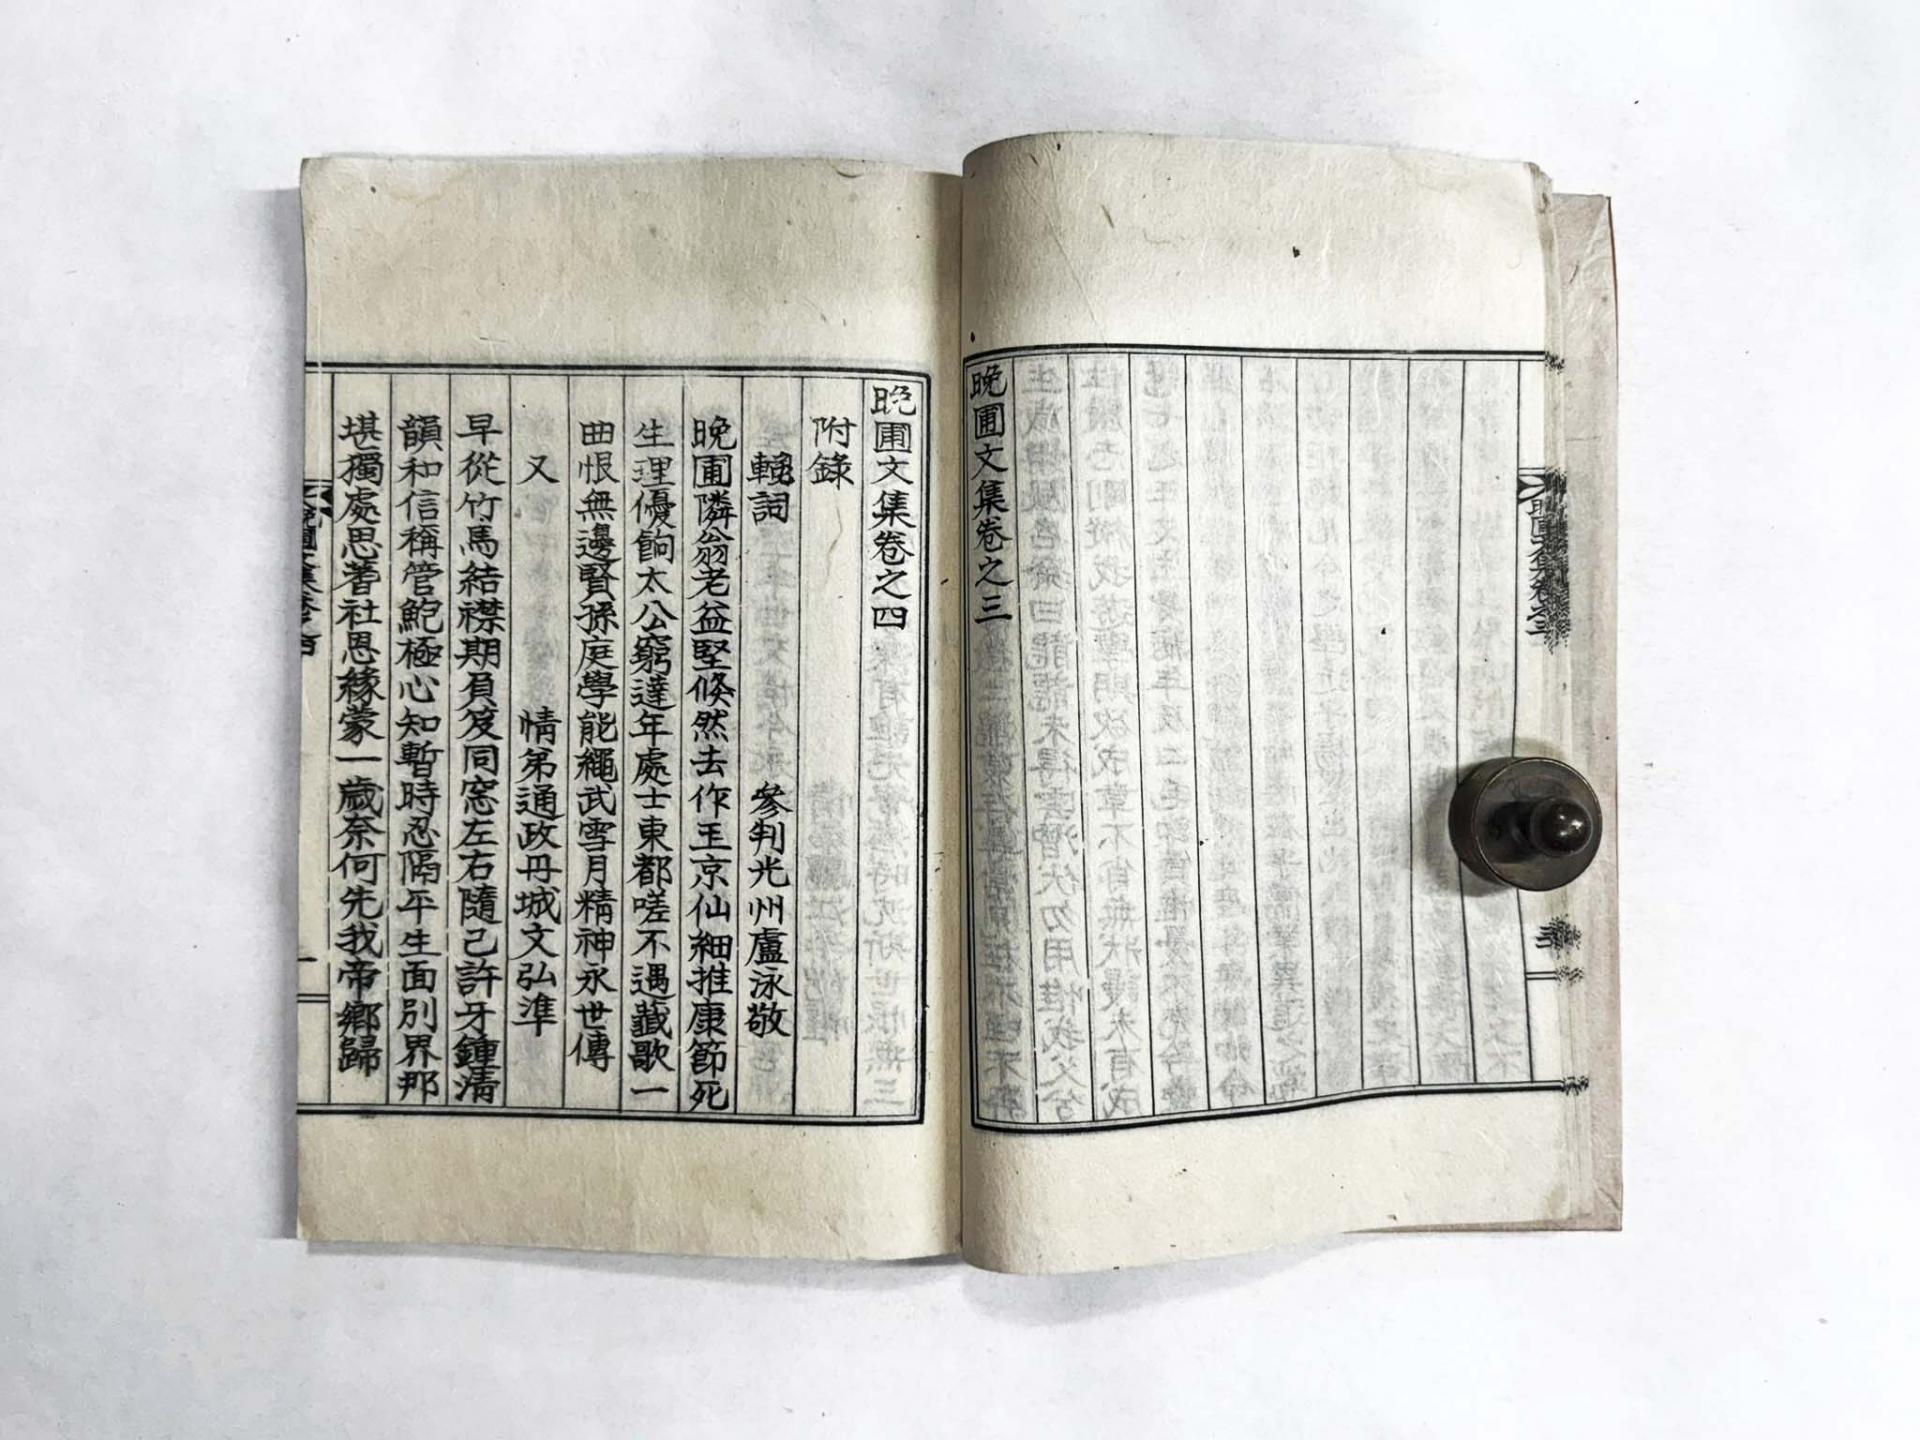 晩圃文集卷之三
晩圃文集卷之四
附錄
輓詞
參判光州盧泳敬
晩圃隣翁老益堅倐然去作玉京仙細推康節死
生理優餉太公窮達年處士東都嗟不遇薤歌一
曲恨無邊賢孫庭學能繩武雪月精神永世傳
又
情弟通政丹城文弘準
早從竹馬結襟期負笈同窓左右隨己許牙鍾淸
韻和信稱管鮑極心知暫時忍隔平生面別界那
堪獨處思著社恩緣蒙一歲奈何先我帝鄕歸